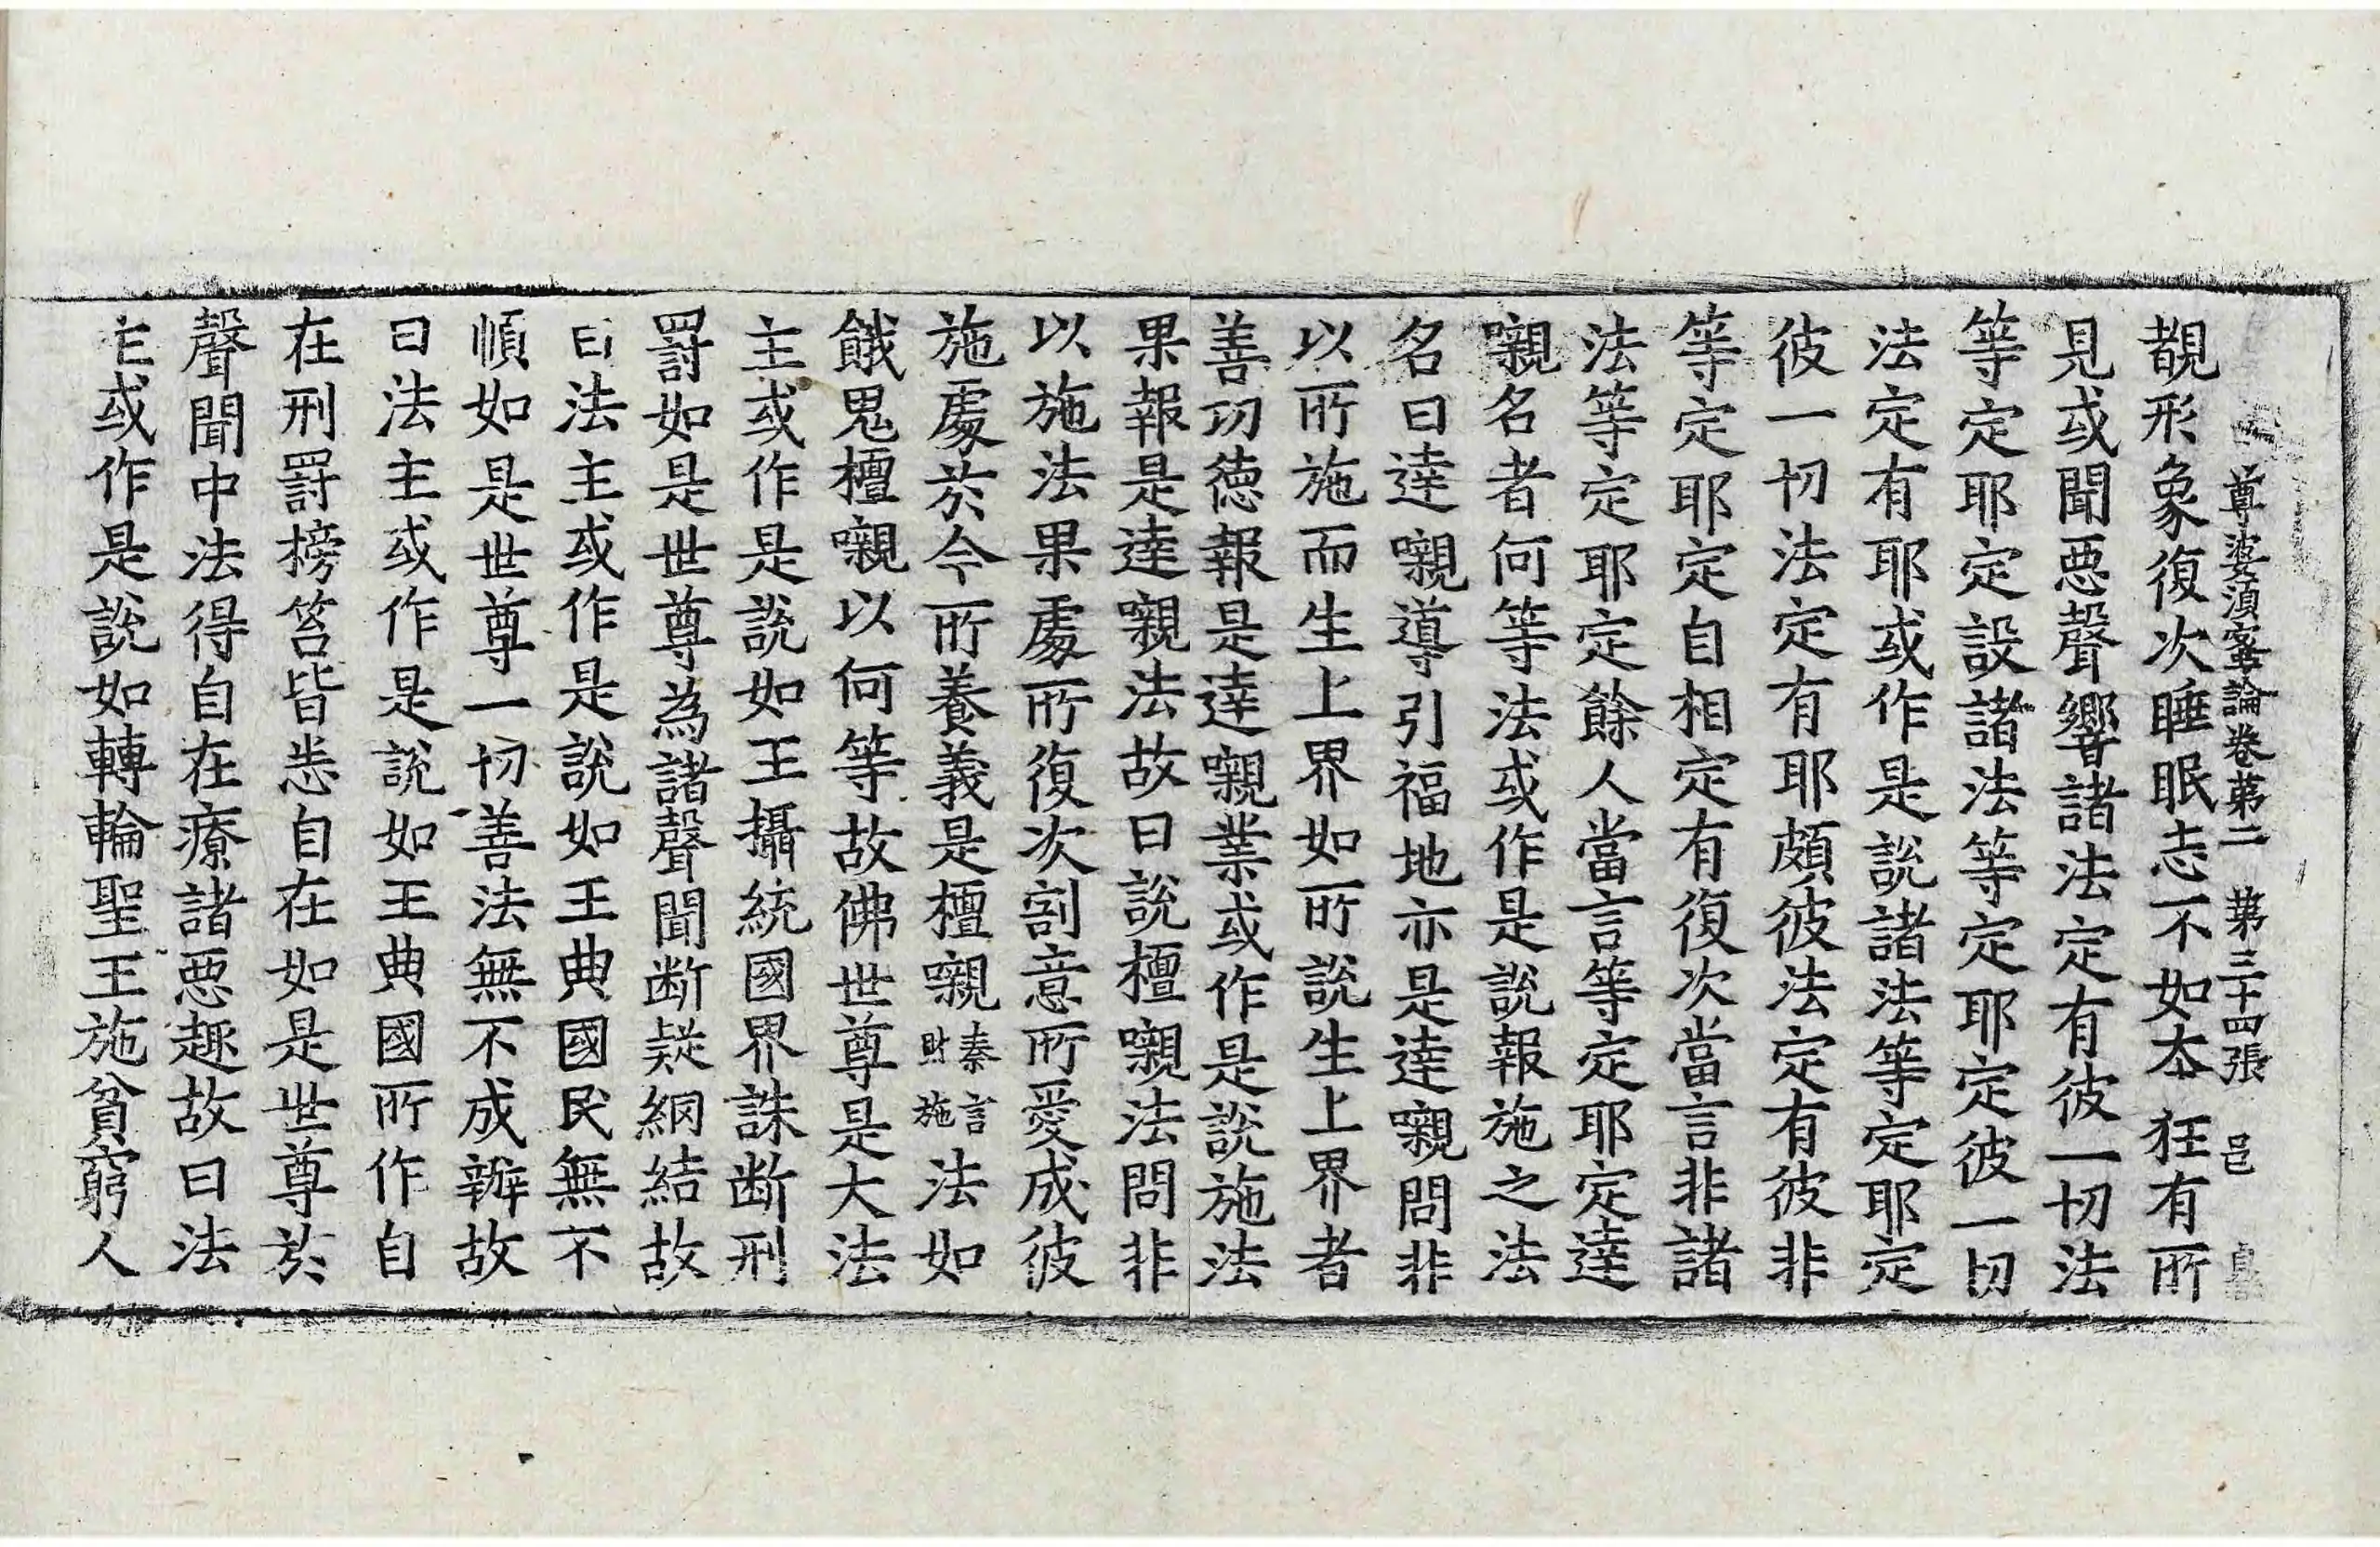 尊婆須蜜論卷第二 第三十四張 邑
覩形象復次睡眠志不如本狂有所
見或聞惡聲響諸法定有彼一切法
等定耶定設諸法等定耶定彼一切
法定有耶或作是說諸法等定耶定
彼一切法定有耶頗彼法定有彼非
等定耶定自相定有復次當言非諸
法等定耶定餘人當言等定耶定達
嚫名者何等法或作是說報施之法
名曰達嚫導引福地亦是達嚫問非
以所施而生上界如所說生上界者
善功德報是達嚫業或作是說施法
果報是達嚫法故曰說檀嚫法問非
以施法果處所復次割意所愛成彼
施處於今所養義是檀嚫秦言財施法如
餓鬼檀嚫以何等故佛世尊是大法
主或作是說如王攝統國界誅斷刑
罰如是世尊為諸聲聞断疑網結故
曰法主或作是說如王典國民無不
順如是世尊一切善法無不成辦故
曰法主或作是說如王典國所作自
在刑罰榜笞皆悉自在如是世尊於
聲聞中法得自在療諸惡趣故曰法
主或作是說如轉輪聖王施貧窮人